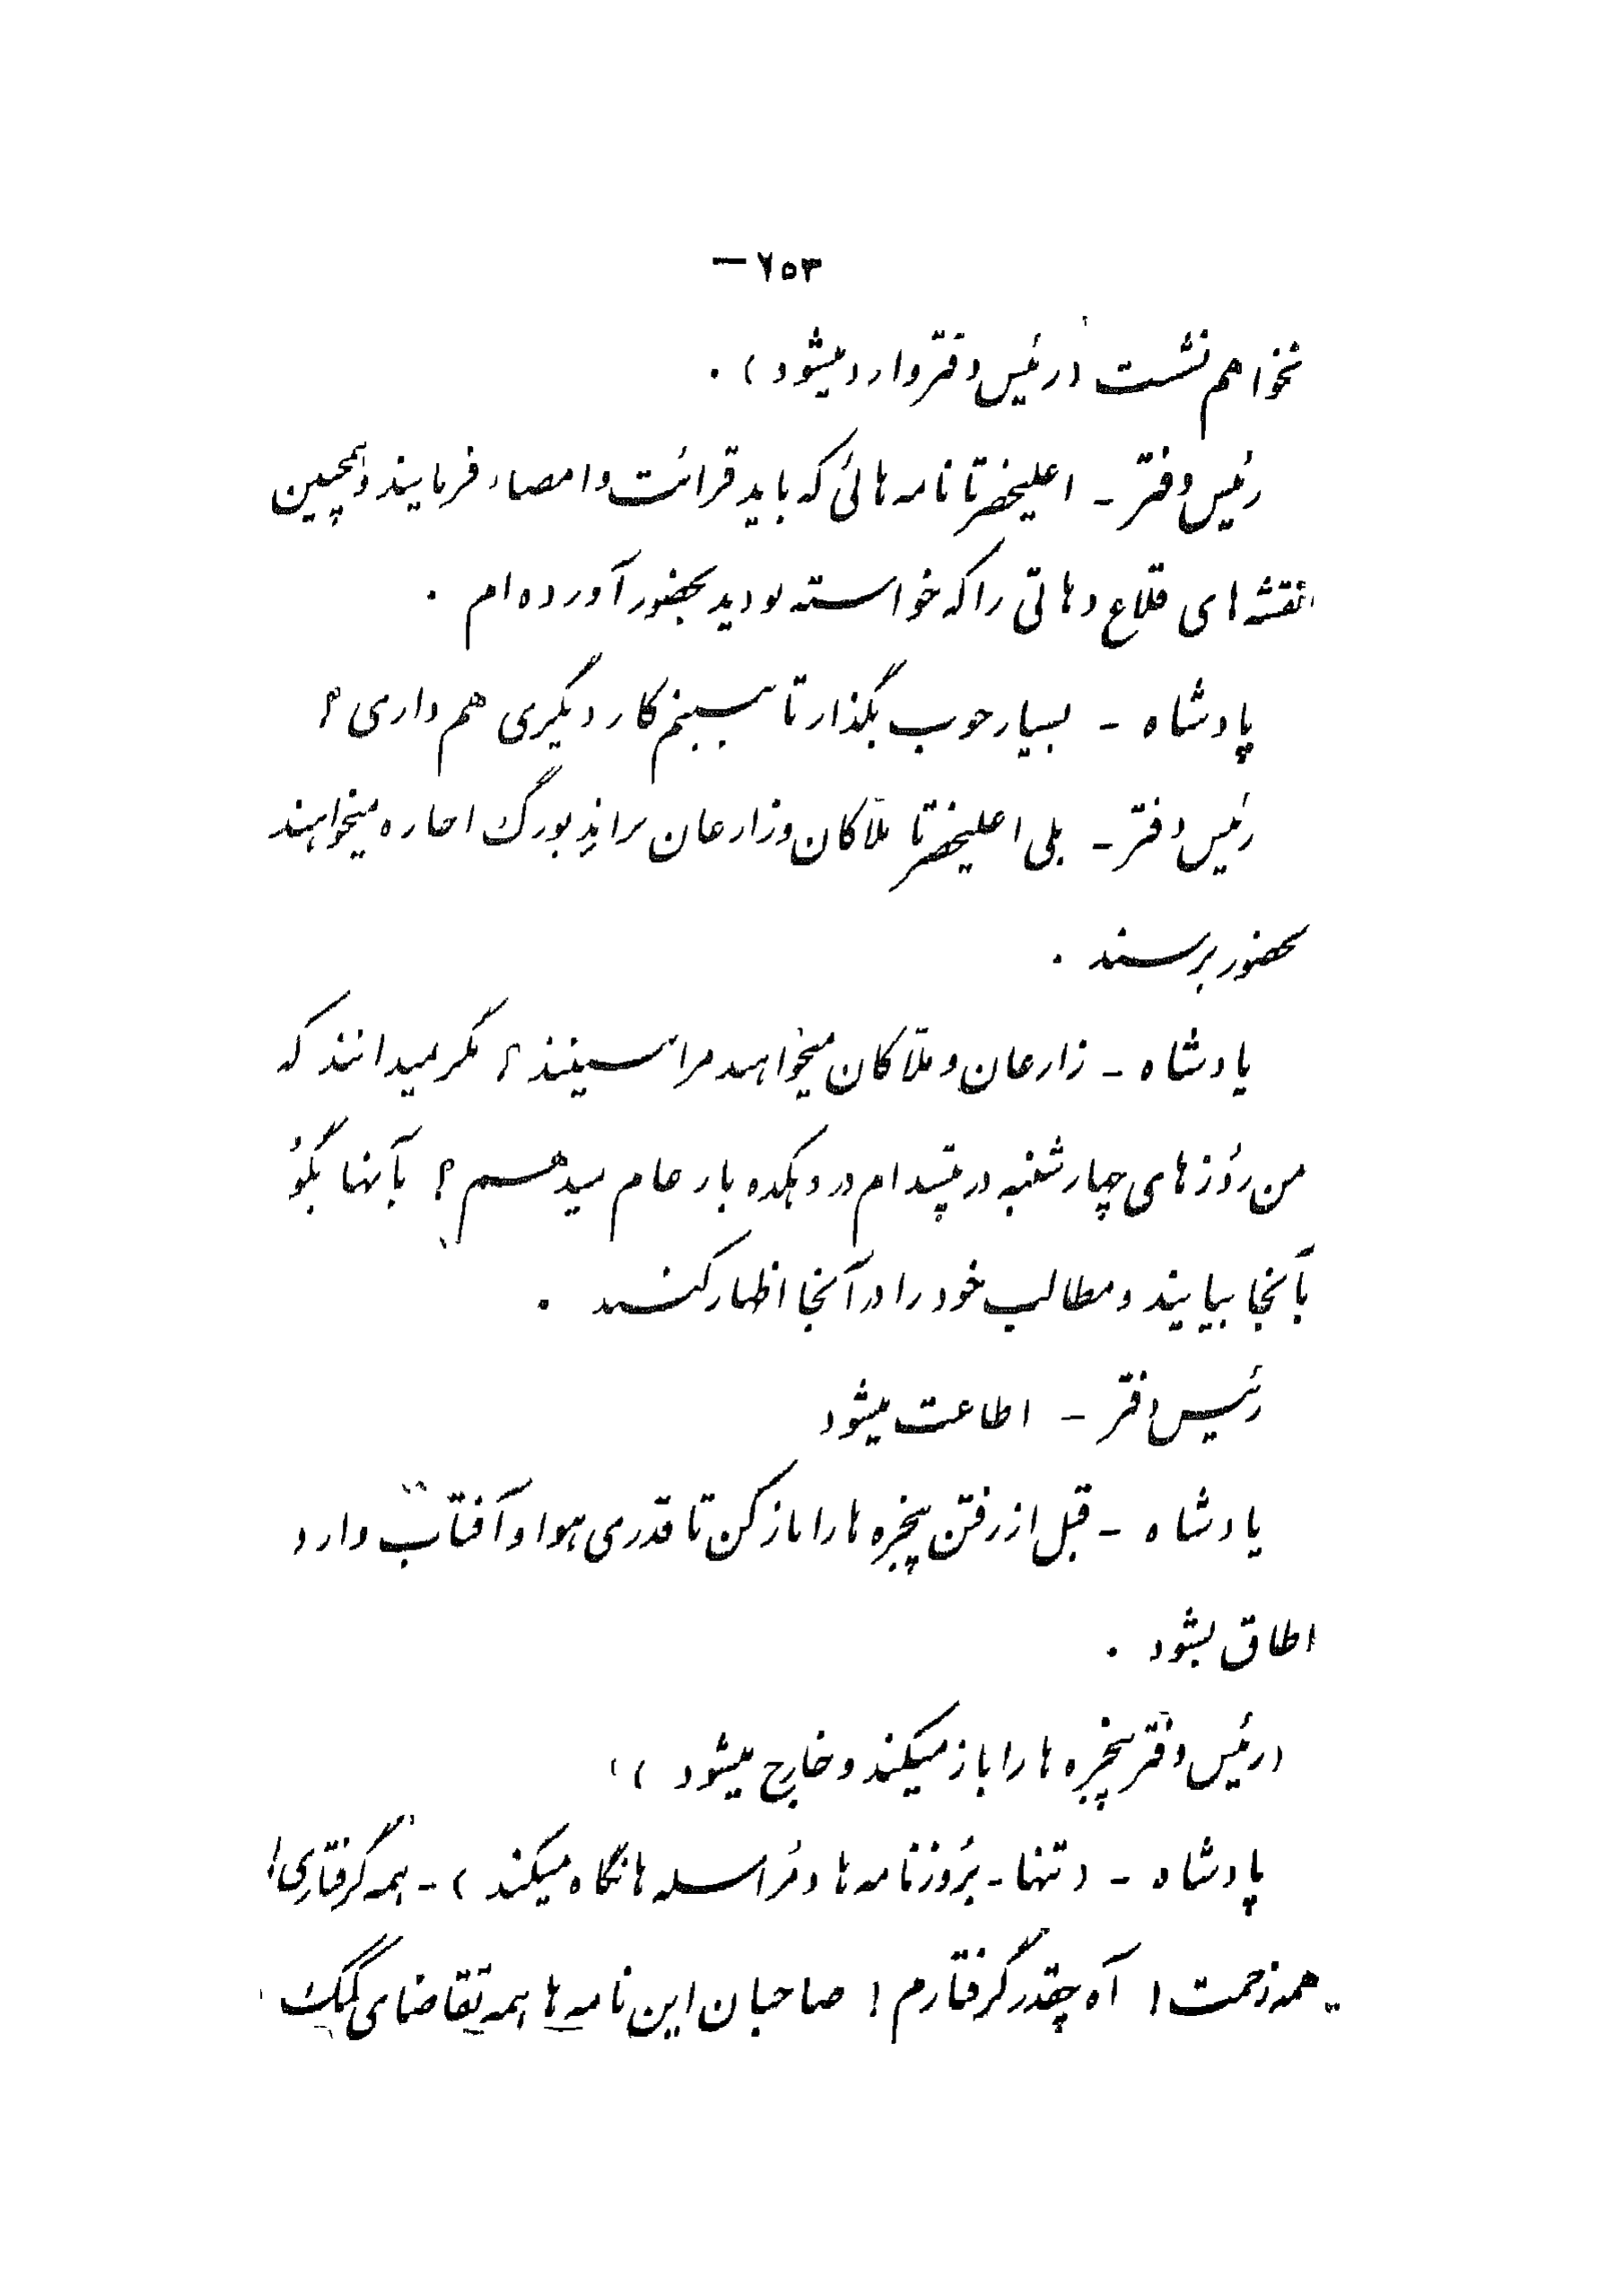 ۷۵۳ —
نخواهم نشست (رئیس دفتر وارد میشود) .
رئیس دفتر - اعلیحضرتا نامه هائی که باید قرائت و امضاء فرمایند و همچنین
نقشه های قلاع دهاتی را که خواسته بودید بحضور آورده ام .
پادشاه - بسیار خوب بگذار تا ببینم کار دیگری هم داری ؟
رئیس دفتر - بلی اعلیحضرتا ملاکان و زارعان براندبورگ اجازه میخواهند
بحضور برسند .
پادشاه - زارعان و ملاکان میخواهند مرا ببینند ؟ مگر نمیدانند که
من روزهای چهارشنبه در پتسدام در دهکده بار عام میدهم ؟ بآنها بگو
بآنجا بیایند و مطالب خود را در آنجا اظهار کنند .
رئیس دفتر - اطاعت میشود
پادشاه - قبل از رفتن پنجره ها را باز کن تا قدری هوا و آفتاب وارد
اطاق بشود .
(رئیس دفتر پنجره ها را باز میکند و خارج میشود )
پادشاه - (تنها - بروزنامه ها و مراسله ها نگاه میکند ) - همه گرفتاری !
همه زحمت ! آه چقدر گرفتارم ! صاحبان این نامه ها همه تقاضای کمک